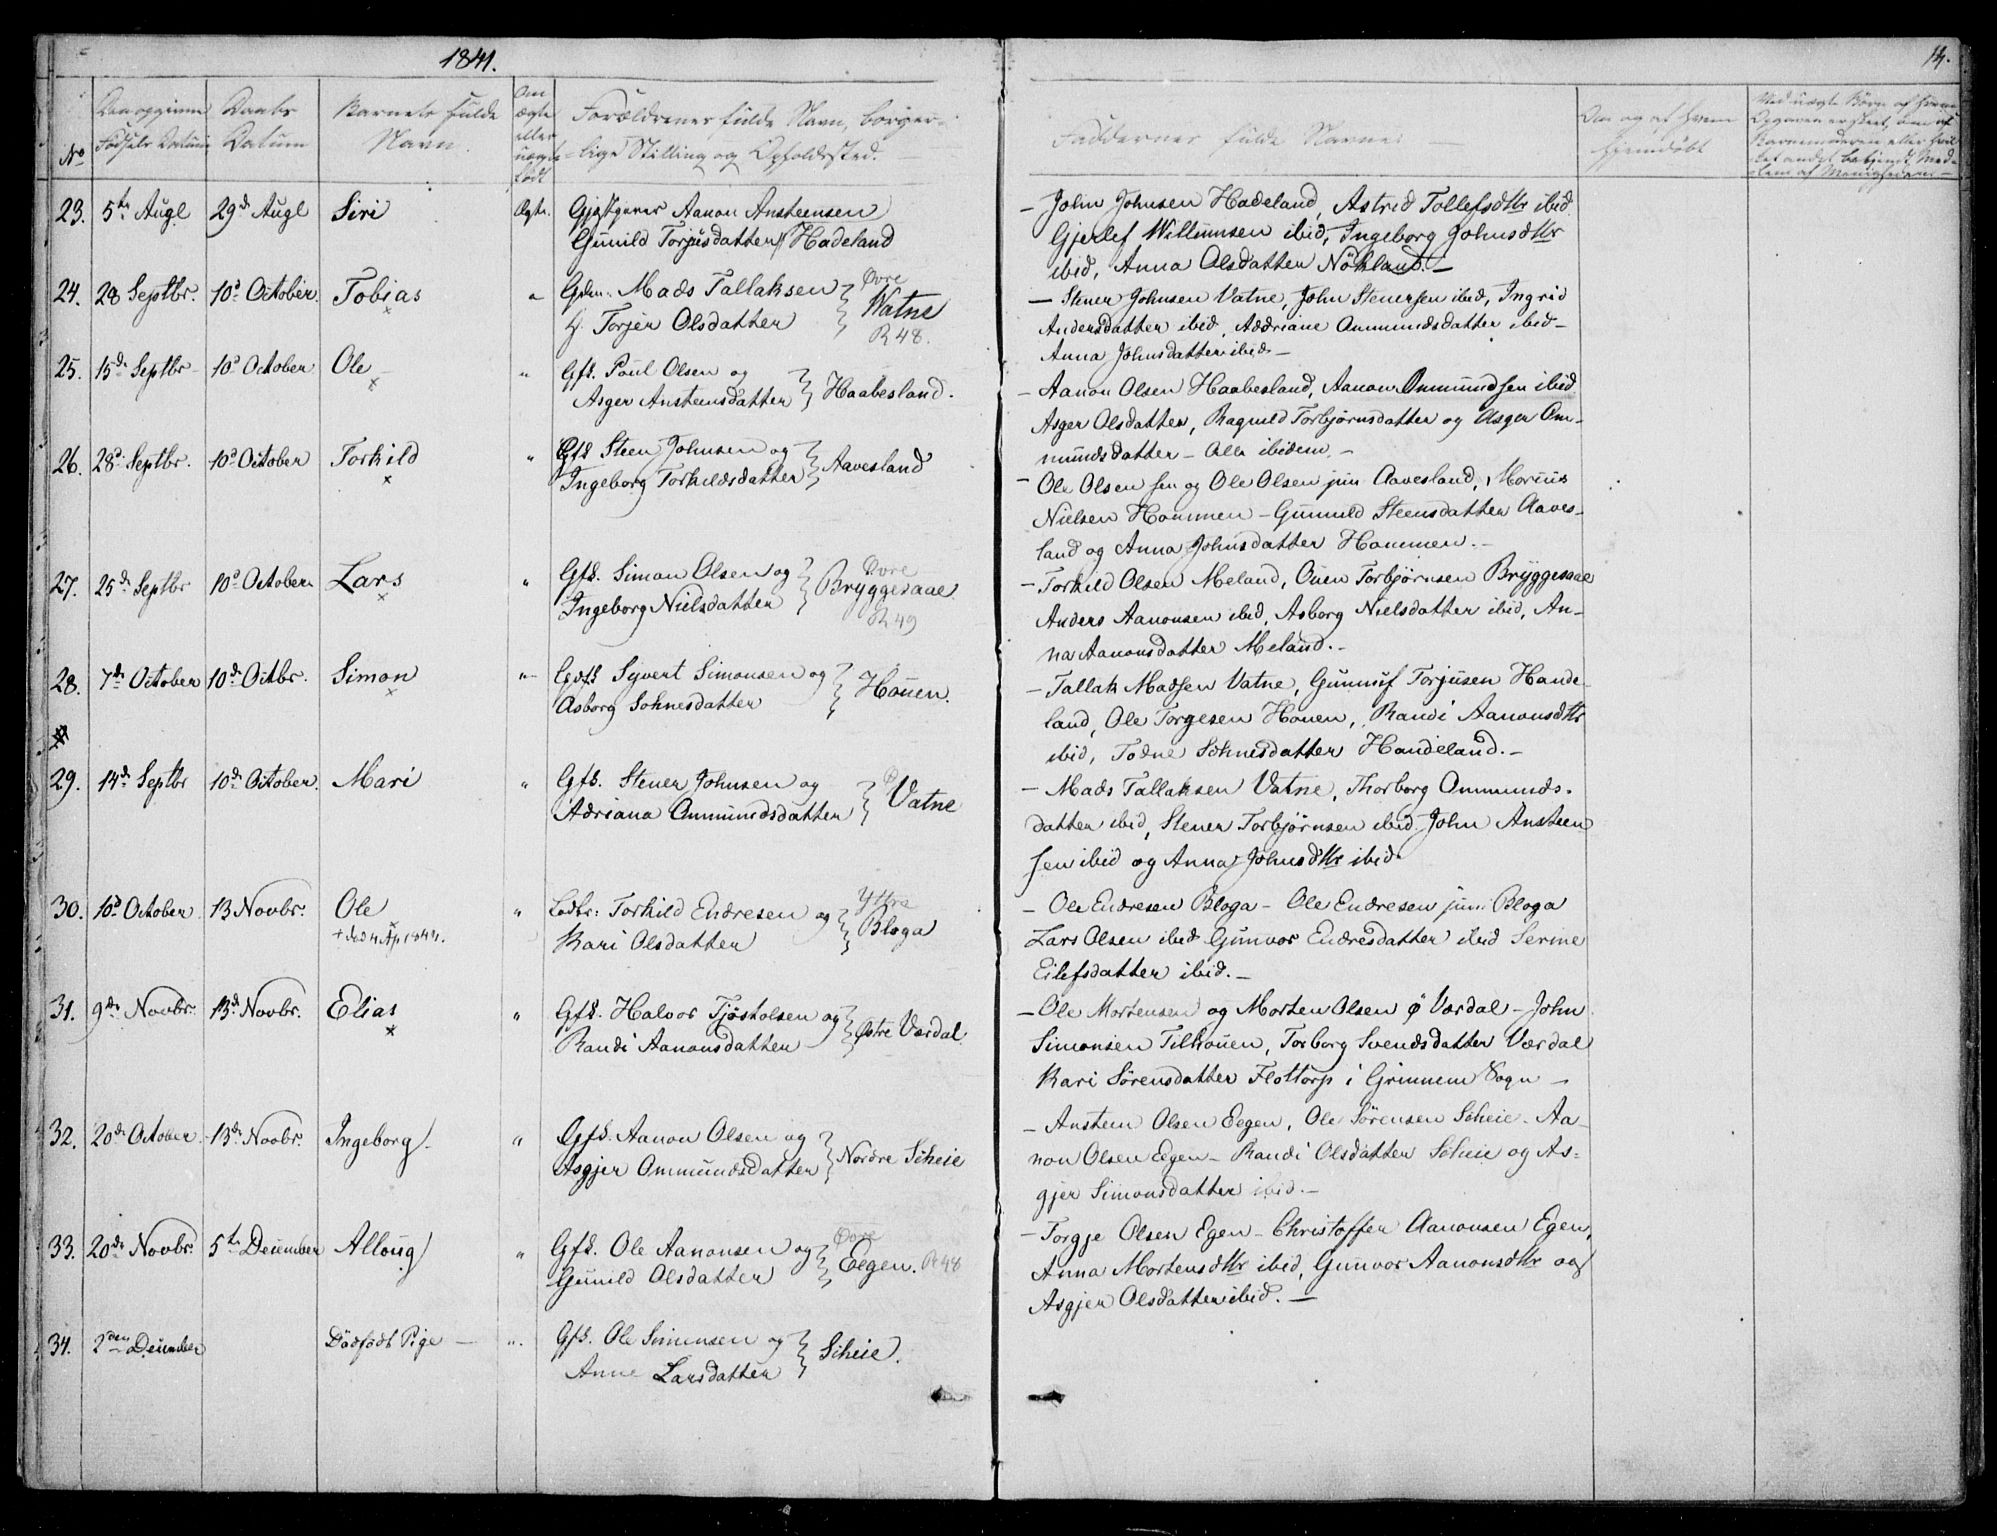 1841.
14.
No
Den opgivne Fødsels Datum
Daabs Datum
Barnets fulde Navn.
Om ægte eller uægte født
Forældrenes fulde Navn, borger-
lige Stilling og Opholdssted.
Faddernes fulde Navne.
Om og af hvem hjemdøbt
23. 5te Augl 29de Augl Siri Ægte. Gjestgever Aanon Ansteensen
Gunild Torjusdatter Hadeland
– John Johnsen Hadeland, Astrid Tollefsdttr ibid
Gjerlef Willumsen ibid, Ingeborg Johnsdttr
ibid, Anna Olsdatter Nökland. –
24. 28 Septbr. 10d October. Tobias " Gdm. Mads Tallaksen Øvre
H. Torjer Olsdatter Watne
R 48.
– Stener Johnsen Vatne, John Stenersen ibid, Ingrid
Andersdatter ibid, Addriane Ommundsdatter ibid –
Anna Johnsdatter ibid –
25. 15de Septbr 10d October Ole " Gfs. Poul Olsen og
Asger Ansteensdatter Haabesland.
– Aanon Olsen Haabesland, Aanon Ommundsen ibid
Asger Olsdatter, Ragnild Torbjørnsdatter og Asger Om-
mundsdatter – Alle ibidem –
26. 28d Septbr. 10d October Torkild " Gfs Steen Johnsen og
Ingeborg Torkildsdatter Aavesland
– Ole Olsen sen og Ole Olsen jun Aavesland, Morius
Nielsen Hommen – Gunuld Steensdatter Aaves-
land og Anna Johnsdatter Hommen. –
27. 25de Septbr 10d October Lars " Gfs. Simon Olsen og Øvre
Ingeborg Nielsdatter Bryggesaae.
R 49
– Torkild Olsen Meland, Ouen Torbjørnsen Bryggesaae
Anders Aanonsen ibid, Asborg Nielsdatter ibid, An-
na Aanonsdatter Meland. –
28. 7de October 10de Octbr. Simon " Gdfs Syvert Simonsen og
Asborg Sohnesdatter Houen.
– Tallak Madsen Vatne, Gunnuf Torjusen Hande-
land, Ole Torgesen Houen, Randi Aanonsdttr
ibid, Todne Sohnesdatter Handeland. –
29. 14de Septbr 10de October. Mari " Gfs. Stener Johnsen og
Adriana Ommundsdatter Ø Vatne
– Mads Tallaksen Vatne, Thorborg Ommunds-
datter ibid, Stener Torbjørnsen ibid. John Ansteen
sen ibid og Anna Johnsdttr ibid
30. 10d October 13 Novbr. Ole " Lodbr: Torkild Endresen og Yttre
† ded 4 Ap 1844. Kari Olsdatter Bloga
– Ole Endresen Bloga – Ole Endresen jun. Bloga
Lars Olsen ibid Gunvor Endresdatter ibid Serine
Eilefsdatter ibid. –
31. 9de Novbr. 13de Novbr. Elias " Gfs. Halvor Tjøstolsen og
Randi Aanonsdatter Østre Værdal
– Ole Mortensen og Morten Olsen ø Værdal – John
Simonsen Tilhouen, Torborg Svendsdatter Værdal
Kari Sörensdatter Flottorp i Grimnem Sogn –
32. 20de October 13de Novbr. Ingeborg " Gfs. Aanon Olsen og
Asgjer Ommundsdatter Nordre Scheie
– Anstein Olsen Eegen, Ole Sörensen Scheie – Aa-
non Olsen Eegen – Randi Olsdatter Scheie og As-
gjer Simonsdatter ibid. –
33. 20de Novbr. 5te December Alloug " Gfs. Ole Aanonsen og Øvre
Gunild Olsdatter Eegen. R 48
– Torgje Olsen Egen – Christoffer Aanonsen Egen,
Anna Mortensdttr ibid, Gunvor Aanonsdttr og
Asgjer Olsdatter ibid. –
34. 2den December Dödfödt Pige – " Gfs. Ole Simonsen og
Anne Larsdatter Scheie.